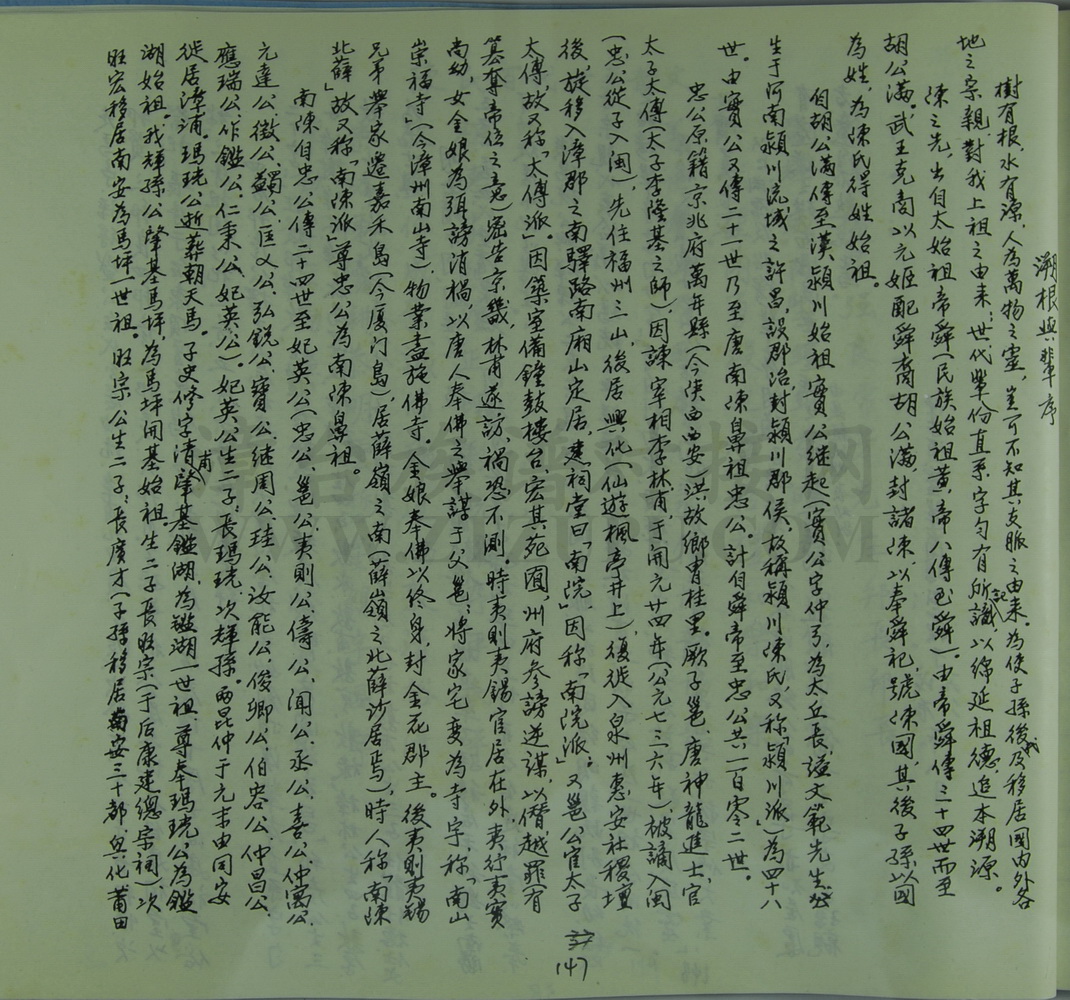 溯根與輩序
樹有根，水有源，人為萬物之靈，豈可不知其支脈之由来。為使子孫後代及移居國内外各
地之宗親，對我上祖之由来；世代輩份直系字勻有所識記，以綿延祖德，追本溯源。
陳之先，出自太始祖帝舜（民族始祖黃帝八傳至舜）。由帝舜傳三十四世而至
胡公滿。武王克商以元姬配舜裔胡公滿，封諸陳，以奉舜祀，號陳國，其後子孫以國
為姓，為陳氏得姓始祖。
自胡公滿傳至漢潁川始祖寔公继起（寔公字仲弓，為太丘長，謚文範先生）
生于河南潁川流域之許昌，設郡治，封潁川郡侯，故稱潁川陳氏，又称「潁川派」）為四十八
世。由寔公又傳二十一世乃至唐南陳鼻祖忠公。計自舜帝至忠公共一百零二世。
忠公原籍京兆府萬年縣（今陕西西安）洪故鄉胄桂里。厥子邕，唐神龍進士，官
太子太傅（太子李隆基之師），因諫宰相李林甫于開元廿四年（公元七三六年）被謫入閩
（忠公從子入閩），先住福州三山，後居興化（仙遊楓亭井上），復徙入泉州惠安社稷壇
後，旋移入漳郡之南驛路南廂山定居，建祠堂曰「南院」，因称「南院派」；又邕公官太子
太傅，故又称「太傅派」。因築室備鐘鼓楼台，宏其苑囿，州府參謗逆謀，以僭越罪（有
篡奪帝位之意）密告京畿，林甫遂訪，禍恐不測。時夷則夷錫官居在外，夷行夷實
尚幼，女金娘為弭謗消禍，以唐人奉佛之舉，謀于父邕；将家宅变為寺宇，称「南山
崇福寺」（今漳州南山寺），物業盡施佛寺。金娘奉佛以终身，封金花郡主。後夷則夷錫
兄弟舉家遷嘉禾島（今厦门島），居薛嶺之南（薛嶺之北薛沙居焉），時人称「南陳
北薛」故又称「南陳派」尊忠公為南陳鼻祖。
南陳自忠公傳二十四世，至妃英公（忠公、邕公、夷則公、儔公、闻公、丞公、喜公、仲寓公、
元達公、徵公、蠲公、匡义公、弘銳公、寶公、继周公、珪公、汝能公、俊卿公、伯容公、仲昌公、
應瑞公、作鑑公、仁秉公、妃英公）。妃英公生二子；長瑪珖、次輝孫。两昆仲于元末由同安
徙居漳浦。瑪珖公逝葬朝天馬。子史修字清甫肇基鑑湖，為鑑湖一世祖，尊奉瑪珖公為鑑
湖始祖。我輝孫公肇基馬坪，為馬坪開基始祖。生二子長旺宗（于后康建總宗祠），次
旺宏移居南安為馬坪一世祖。旺宗公生二子；長廣才（子孫移居南安三十都，與化莆田
147